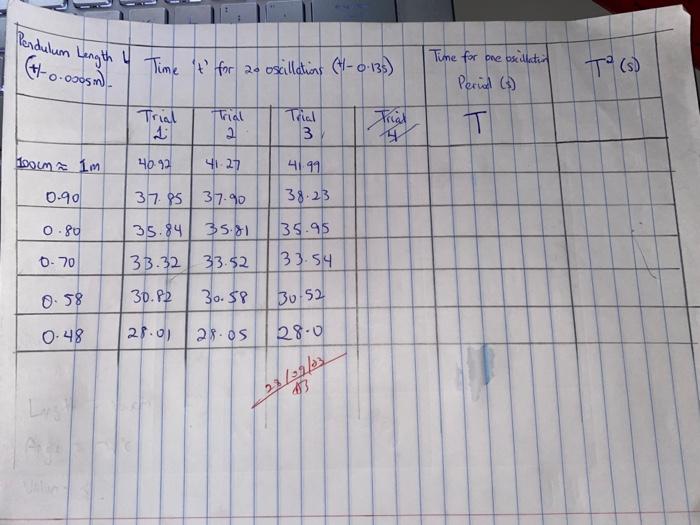 Pendulum Length L Time 't' for 20 oscillations (+/- 0.13s) Time for one oscillation T² (s)
(+/-0.0005m). Period (s)
Trial Trial Trial Trial T
1 2 3 4
100cm ≈ 1m 40.92 41.27 41.99
0.90 37.85 37.90 38.23
0.80 35.84 35.81 35.95
0.70 33.32 33.52 33.54
0.58 30.82 30.58 30.52
0.48 28.01 28.05 28.0